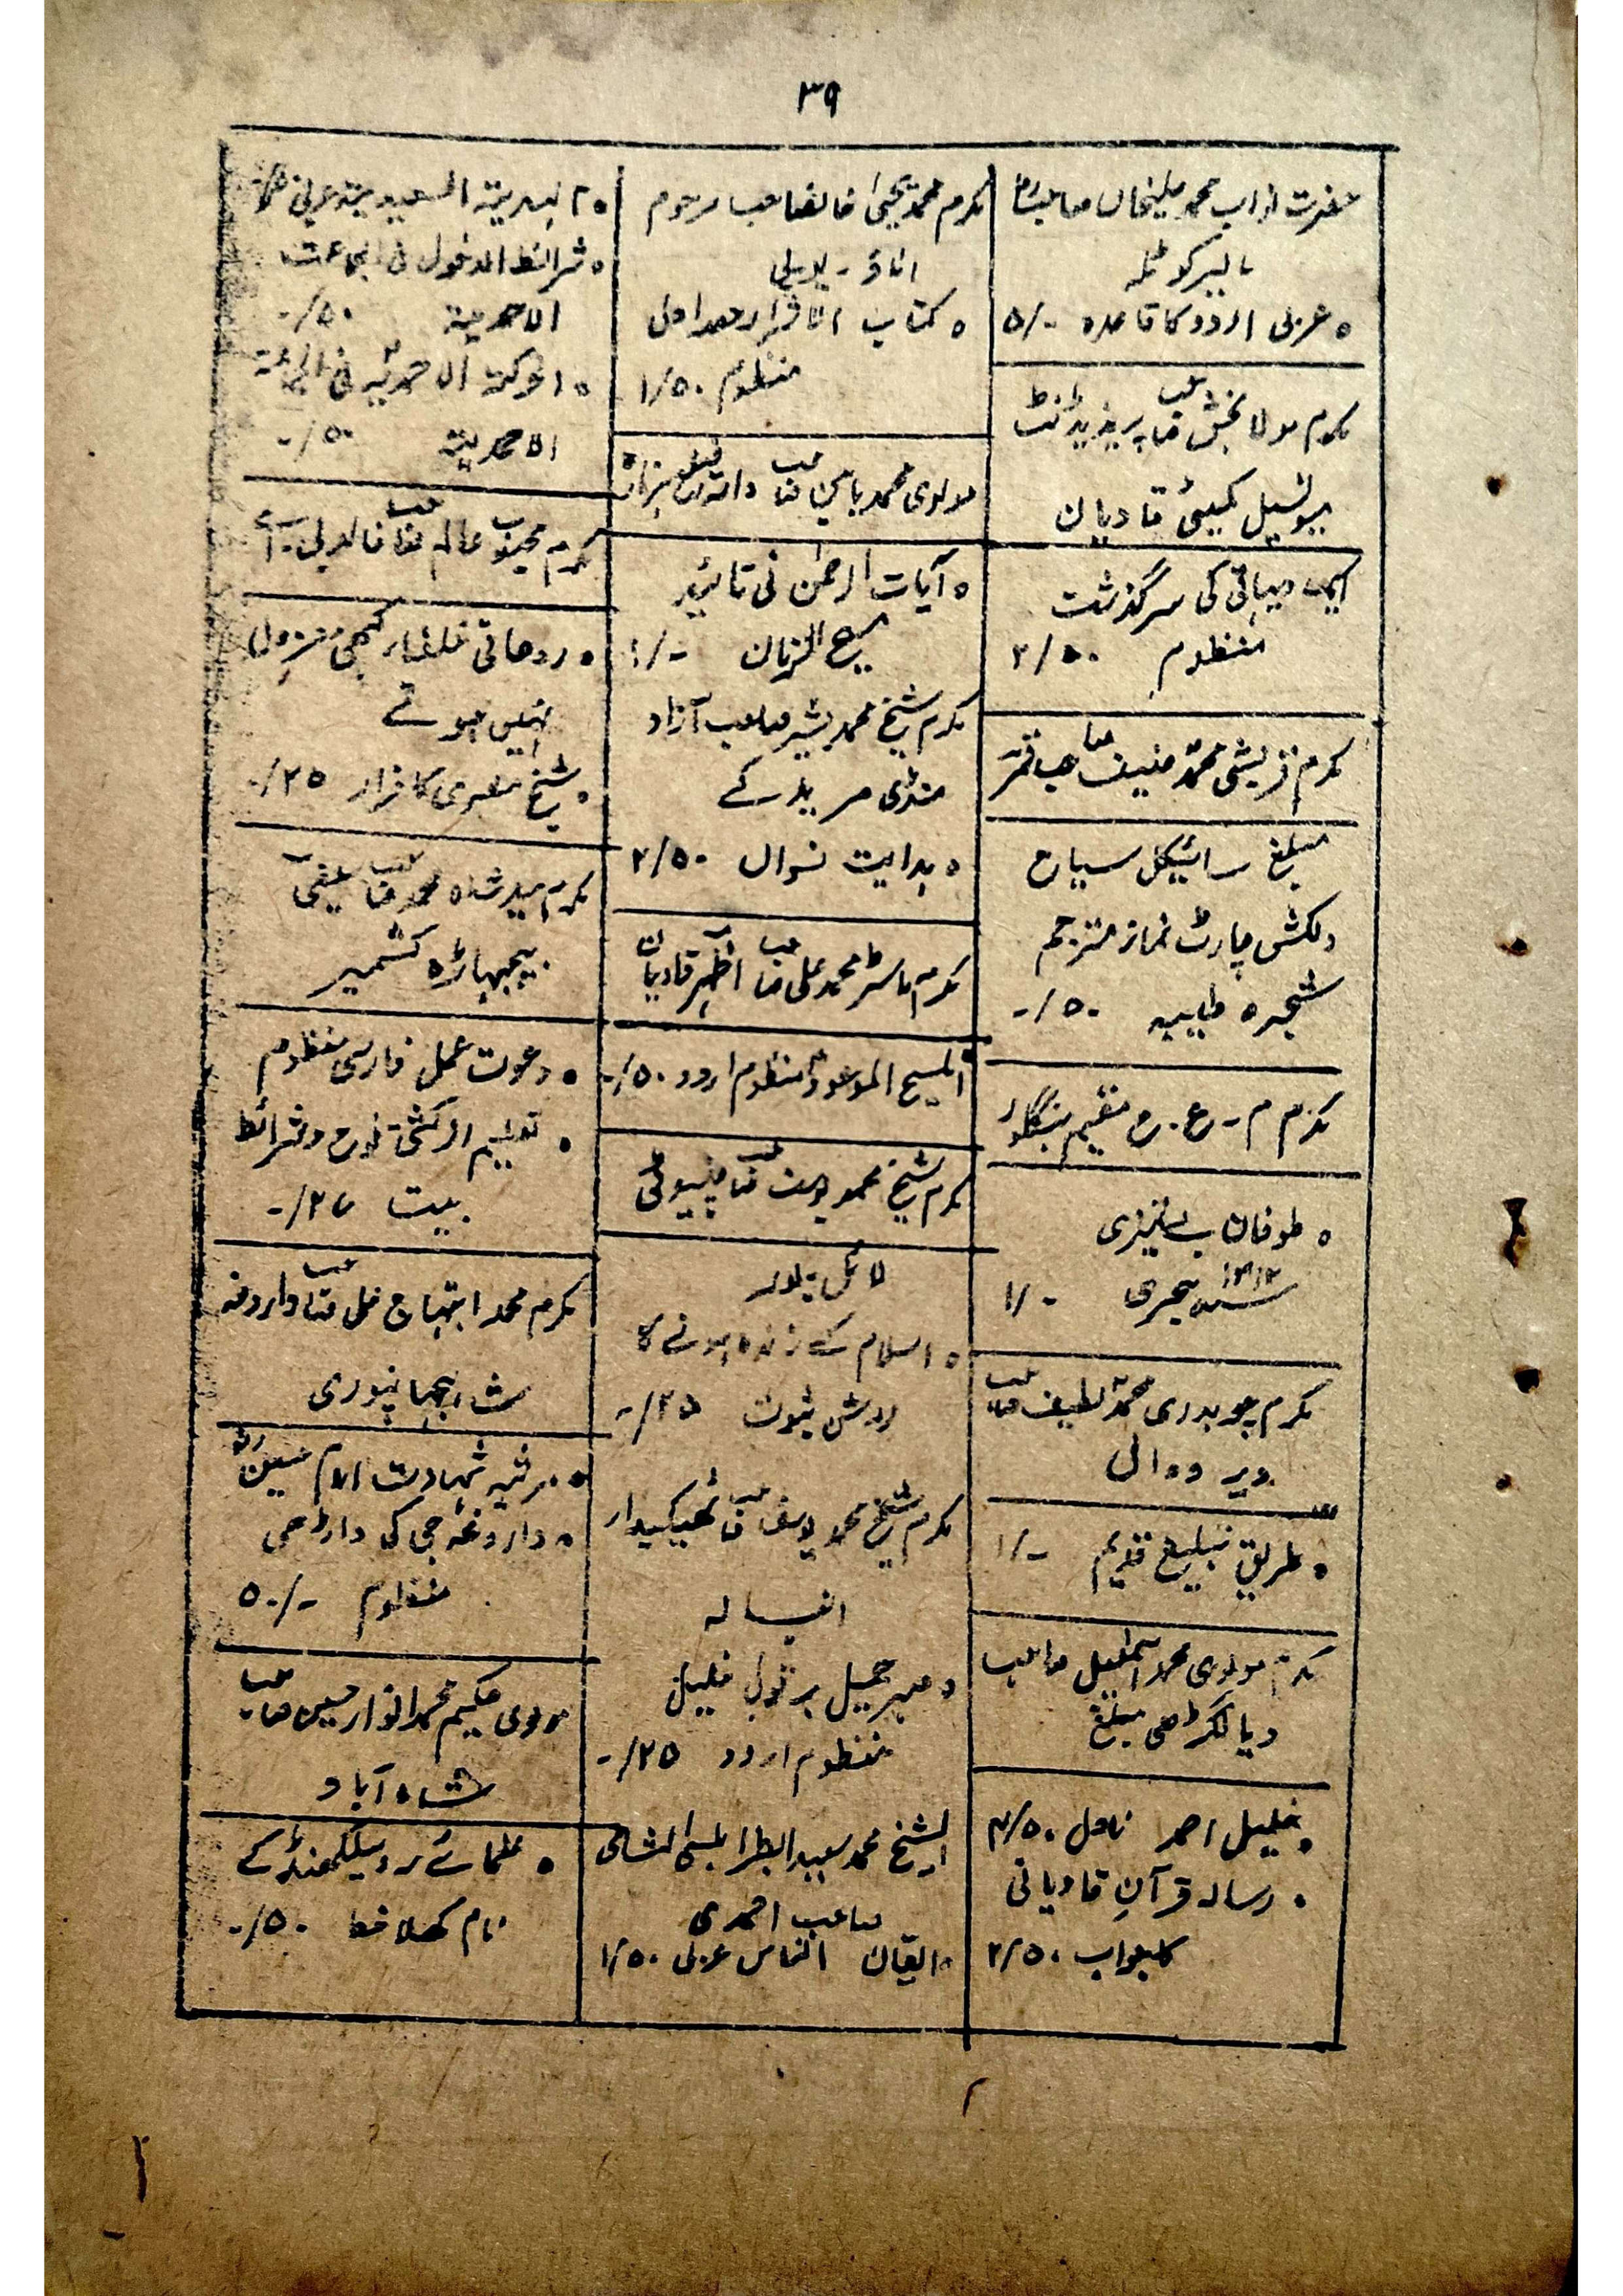 ۳۹
حضرت نواب محمد علیخاں صاحب رض
مالیر کوٹلہ
عربی اردو کا قاعدہ ۵/۰
مکرم مولا بخش صاحب پریذیڈنٹ
میونسپل کمیٹی قادیان
ایک دیہاتی کی سرگذشت
منظوم ۲/۵۰
مکرم قریشی محمد حنیف صاحب قمر
مبلغ سائیکل سیاح
دلکش چارٹ نماز مترجم
شجرہ طیبہ ۵۰/-
مکرم م - ع . ح مقیم بنگلور
طوفان بے تمیزی
۱۳۱۲ سنہ ہجری ۱/۰
مکرم چوہدری محمد لطیف صاحب
دیر ووال
طریق تبلیغ قدیم ۱/-
مکرم مولوی محمد اسمٰعیل صاحب
دیالگڑھی مبلغ
خلیل احمد ناول ۴/۵۰
رسالہ قرآنِ قادیانی
کا جواب ۲/۵۰
مکرم محمد یحییٰ خانصاحب مرحوم
اناؤ - یو پی
کتاب الاقرار حصہ اول
منظوم ۱/۵۰
مولوی محمد یامین صاحب داتہ ضلع ہزارہ
آیات الرحمٰن فی تائید
مسیح الزمان ۱/-
مکرم شیخ محمد بشیر صاحب آزاد
منڈی مریدکے
ہدایت نسواں ۲/۵۰
مکرم ماسٹر محمد علی صاحب اظہر قادیان
المسیح الموعود منظوم اردو ۵۰/-
مکرم شیخ محمد یوسف صاحب چنیوٹی
لائل پور
اسلام کے زندہ ہونے کا
روشن ثبوت ۲۵/-
مکرم شیخ محمد یوسف صاحب ٹھیکیدار
انبالہ
صبر جمیل بر قول خلیل
منظوم اردو ۲۵/-
الشیخ محمد سعید الطرابلسی الشامی
صاحب احمدی
ایقاظ الناس عربی ۱/۵۰
الہدیۃ السعیدیۃ عربی
شرائط الدخول فی الجماعت
الاحمدیۃ ۵۰/-
الحرکۃ الاحمدیۃ فی الجماعۃ
الاحمدیۃ ۵۰/-
مکرم محبوب عالم صاحب خالد بی - اے
روحانی خلفاء کبھی معزول
نہیں ہوتے
شیخ مصری کا فرار ۲۵/-
مکرم سید شاہ محمد صاحب سیفی
بیجبہاڑہ کشمیر
دعوت عمل فارسی منظوم
تعلیم از کشتی نوح و شرائط
بیعت ۲۷/-
مکرم محمد ابتہاج علی صاحب داروغہ
شاہجہانپوری
مرثیہ شہادت امام حسین رض
داروغہ جی کی داڑھی
منظوم ۵۰/-
مولوی حکیم محمد انوار حسین صاحب
شاہ آباد
علمائے روہیلکھنڈ کے
نام کھلا خط ۵۰/-